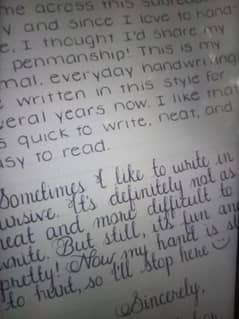 me across this
y and since I love to hand-
e, I thought I'd share my
penmanship! This is my
mal, everyday handwriting
written in this style for
veral years now. I like that
s quick to write, neat, and
asy to read.
Sometimes I like to write in
ursive. It's definitely not as
neat and more difficult to
write. But still, it's fun and
pretty! Now my hand is st
to hurt, so I'll stop here
Sincerely,